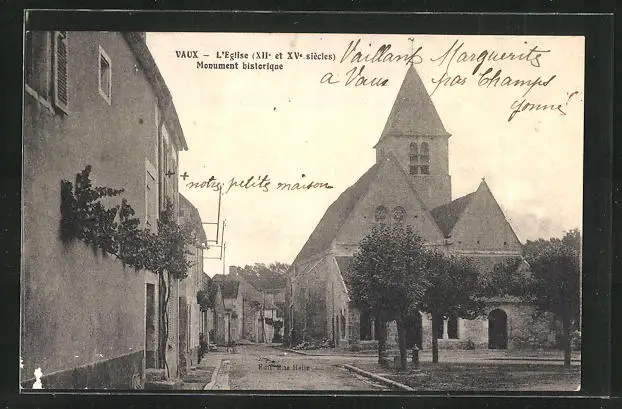 VAUX – L'Eglise (XIIe et XVe siècles)
Monument historique
Vaillant Marguerite
à Vaux par Champs
Yonne
+ notre petite maison
Edit.